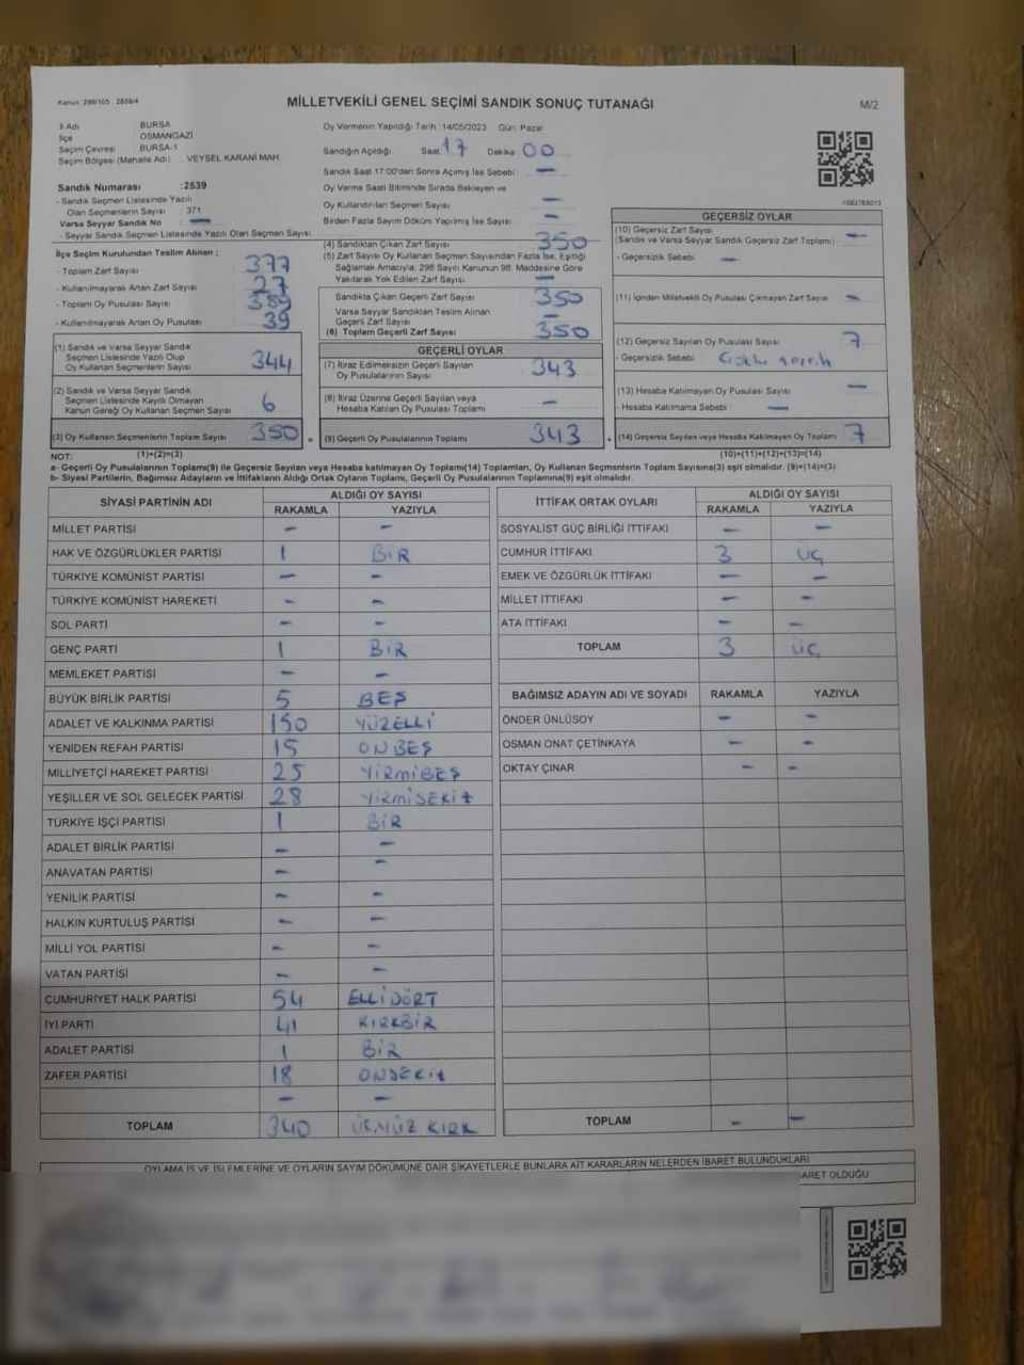 Kanun: 298/105 2839/4
MİLLETVEKİLİ GENEL SEÇİMİ SANDIK SONUÇ TUTANAĞI
M/2
İl Adı BURSA
İlçe OSMANGAZİ
Seçim Çevresi BURSA-1
Seçim Bölgesi (Mahalle Adı) : VEYSEL KARANİ MAH.
Oy Vermenin Yapıldığı Tarih :14/05/2023 Gün: Pazar
Sandığın Açıldığı Saat 17 Dakika 00
Sandık Saat 17:00'den Sonra Açılmış İse Sebebi: -
Oy Verme Saati Bitiminde Sırada Bekleyen ve
Oy Kullandırılan Seçmen Sayısı -
Birden Fazla Sayım Döküm Yapılmış İse Sayısı: -
Sandık Numarası :2539
- Sandık Seçmen Listesinde Yazılı
Olan Seçmenlerin Sayısı : 371
Varsa Seyyar Sandık No -
- Seyyar Sandık Seçmen Listesinde Yazılı Olan Seçmen Sayısı
İlçe Seçim Kurulundan Teslim Alınan :
- Toplam Zarf Sayısı 377
- Kullanılmayarak Artan Zarf Sayısı 27
- Toplam Oy Pusulası Sayısı
- Kullanılmayarak Artan Oy Pusulası 39
(1) Sandık ve Varsa Seyyar Sandık
Seçmen Listesinde Yazılı Olup
Oy Kullanan Seçmenlerin Sayısı 344
(2) Sandık ve Varsa Seyyar Sandık
Seçmen Listesinde Kayıtlı Olmayan
Kanun Gereği Oy Kullanan Seçmen Sayısı 6
(3) Oy Kullanan Seçmenlerin Toplam Sayısı 350
(4) Sandıktan Çıkan Zarf Sayısı 350
(5) Zarf Sayısı Oy Kullanan Seçmen Sayısından Fazla İse, Eşitliği
Sağlamak Amacıyla, 298 Sayılı Kanunun 98. Maddesine Göre
Yakılarak Yok Edilen Zarf Sayısı -
Sandıkta Çıkan Geçerli Zarf Sayısı 350
Varsa Seyyar Sandıktan Teslim Alınan
Geçerli Zarf Sayısı -
(6) Toplam Geçerli Zarf Sayısı 350
GEÇERLİ OYLAR
(7) İtiraz Edilmeksizin Geçerli Sayılan
Oy Pusulalarının Sayısı 343
(8) İtiraz Üzerine Geçerli Sayılan veya
Hesaba Katılan Oy Pusulası Toplamı -
(9) Geçerli Oy Pusulalarının Toplamı 343
GEÇERSİZ OYLAR
(10) Geçersiz Zarf Sayısı
(Sandık ve Varsa Seyyar Sandık Geçersiz Zarf Toplamı) -
- Geçersizlik Sebebi -
(11) İçinden Milletvekili Oy Pusulası Çıkmayan Zarf Sayısı -
(12) Geçersiz Sayılan Oy Pusulası Sayısı 7
- Geçersizlik Sebebi
(13) Hesaba Katılmayan Oy Pusulası Sayısı -
Hesaba Katılmama Sebebi -
(14) Geçersiz Sayılan veya Hesaba Katılmayan Oy Toplamı 7
NOT: (1)+(2)=(3) (10)+(11)+(12)+(13)=(14)
a- Geçerli Oy Pusulalarının Toplamı(9) ile Geçersiz Sayılan veya Hesaba katılmayan Oy Toplamı(14) Toplamları, Oy Kullanan Seçmenlerin Toplam Sayısına(3) eşit olmalıdır. (9)+(14)=(3)
b- Siyasi Partilerin, Bağımsız Adayların ve İttifakların Aldığı Ortak Oyların Toplamı, Geçerli Oy Pusulalarının Toplamına(9) eşit olmalıdır.
SİYASİ PARTİNİN ADI ALDIĞI OY SAYISI
RAKAMLA YAZIYLA
MİLLET PARTİSİ - -
HAK VE ÖZGÜRLÜKLER PARTİSİ 1 BİR
TÜRKİYE KOMÜNİST PARTİSİ - -
TÜRKİYE KOMÜNİST HAREKETİ - -
SOL PARTİ - -
GENÇ PARTİ 1 BİR
MEMLEKET PARTİSİ - -
BÜYÜK BİRLİK PARTİSİ 5 BEŞ
ADALET VE KALKINMA PARTİSİ 150 YÜZELLİ
YENİDEN REFAH PARTİSİ 15 ONBEŞ
MİLLİYETÇİ HAREKET PARTİSİ 25 YİRMİBEŞ
YEŞİLLER VE SOL GELECEK PARTİSİ 28 YİRMİSEKİZ
TÜRKİYE İŞÇİ PARTİSİ 1 BİR
ADALET BİRLİK PARTİSİ - -
ANAVATAN PARTİSİ - -
YENİLİK PARTİSİ - -
HALKIN KURTULUŞ PARTİSİ - -
MİLLİ YOL PARTİSİ - -
VATAN PARTİSİ - -
CUMHURİYET HALK PARTİSİ 54 ELLİDÖRT
İYİ PARTİ 41 KIRKBİR
ADALET PARTİSİ 1 BİR
ZAFER PARTİSİ 18 ONSEKİZ
- -
TOPLAM 340 ÜÇYÜZ KIRK
İTTİFAK ORTAK OYLARI ALDIĞI OY SAYISI
RAKAMLA YAZIYLA
SOSYALİST GÜÇ BİRLİĞİ İTTİFAKI - -
CUMHUR İTTİFAKI 3 ÜÇ
EMEK VE ÖZGÜRLÜK İTTİFAKI - -
MİLLET İTTİFAKI - -
ATA İTTİFAKI - -
TOPLAM 3 ÜÇ
BAĞIMSIZ ADAYIN ADI VE SOYADI RAKAMLA YAZIYLA
ÖNDER ÜNLÜSOY - -
OSMAN ONAT ÇETİNKAYA - -
OKTAY ÇINAR - -
TOPLAM - -
OYLAMA İŞ VE İŞLEMLERİNE VE OYLARIN SAYIM DÖKÜMÜNE DAİR ŞİKAYETLERLE BUNLARA AİT KARARLARIN NELERDEN İBARET BULUNDUKLARI
BARET OLDUĞU